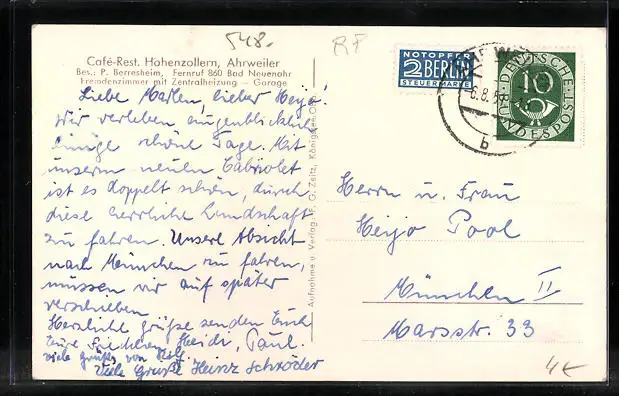 548.
RF
Café-Rest. Hohenzollern, Ahrweiler
Bes.: P. Berresheim, Fernruf 860 Bad Neuenahr
Fremdenzimmer mit Zentralheizung - Garage
Liebe Marlen, lieber Heyo!
Wir verleben augenblicklich
einige schöne Tage. Mit
unserm neuen Cabriolet
ist es doppelt schön, durch
diese herrliche Landschaft
zu fahren. Unsere Absicht
nach München zu fahren,
müssen wir auf später
verschieben
Herzliche Grüße senden Euch
Heidi, Paul.
viele Grüße von
Viele Grüße Heinz Schröder
Aufnahme u. Verlag: F. G. Zeitz, Königsee
NOTOPFER
2 BERLIN
STEUERMARKE
DEUTSCHE
BUNDESPOST
10
b
Herrn u. Frau
Heyo Pool
München II
Marsstr. 33
4€